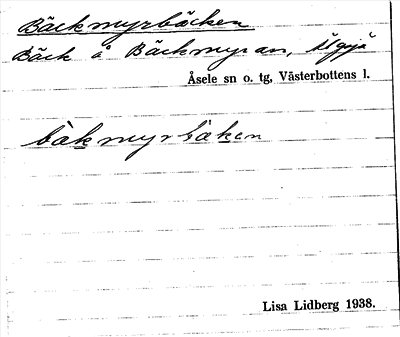 Bäckmyrbäcken
Bäck å Bäckmyran, Älgsjö
Åsele sn o. tg, Västerbottens l.
bäkmyrbäken
Lisa Lidberg 1938.